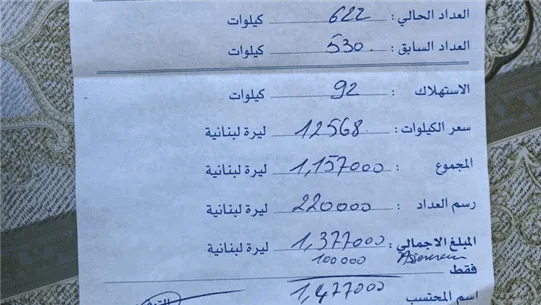 العداد الحالي : 622 كيلوات
العداد السابق : 530 كيلوات
الاستهلاك : 92 كيلوات
سعر الكيلوات : 12568 ليرة لبنانية
المجموع : 1,157000 ليرة لبنانية
رسم العداد : 220000 ليرة لبنانية
المبلغ الاجمالي : 1,377000 ليرة لبنانية
100 000
فقط
1,477000
اسم المحتسب